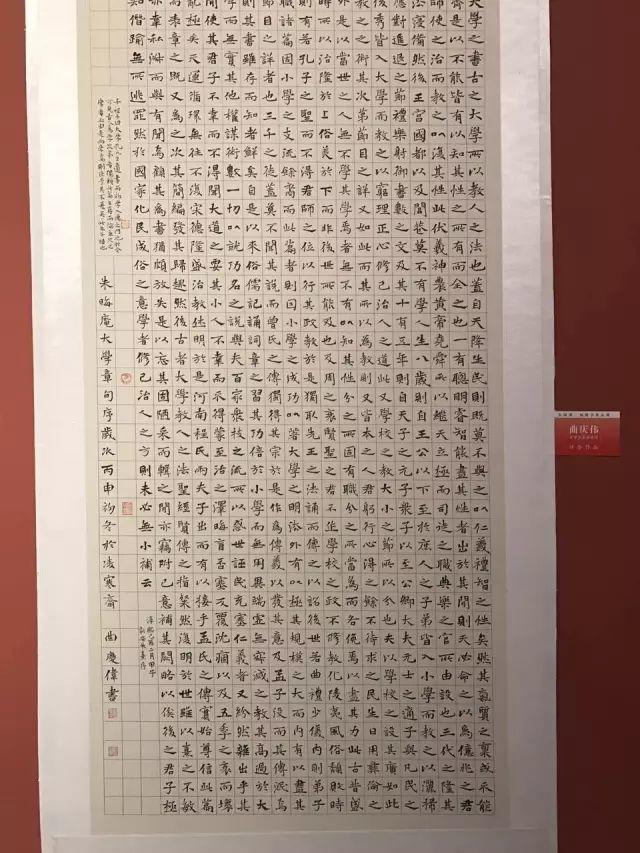 大學之書古之大學所以教人之法也蓋自天降生民則既莫不與之以仁義禮智之性矣然其氣質之稟或不能
齊是以不能皆有以知其性之所有而全之也一有聰明睿智能盡其性者出於其間則天必命之以為億兆之君
師使之治而教之以復其性此伏羲神農黃帝堯舜所以繼天立極而司徒之職典樂之官所由設也三代之隆其
法寖備然後王宮國都以及閭巷莫不有學人生八歲則自王公以下至於庶人之子弟皆入小學而教之以灑掃
應對進退之節禮樂射御書數之文及其十有五年則自天子之元子衆子以至公卿大夫元士之適子與凡民之
俊秀皆入大學而教之以窮理正心修己治人之道此又學校之教大小之節所以分也夫以學校之設其廣如此
教之之術其次第節目之詳又如此而其所以為教則又皆本之人君躬行心得之餘不待求之民生日用彝倫之
外是以當世之人無不學其學焉者無不有以知其性分之所固有職分之所當為而各俛焉以盡其力此古昔盛
時所以治隆於上俗美於下而非後世所能及也及周之衰賢聖之君不作學校之政不修教化陵夷風俗頹敗時
則有若孔子之聖而不得君師之位以行其政教於是獨取先王之法誦而傳之以詔後世若曲禮少儀內則弟子
職諸篇固小學之支流餘裔而此篇者則因小學之成功以著大學之明法外有以極其規模之大而內有以盡其
節目之詳者也三千之徒蓋莫不聞其說而曾氏之傳獨得其宗於是作為傳義以發其意及孟子沒而其傳泯焉
則其書雖存而知者鮮矣自是以來俗儒記誦詞章之習其功倍於小學而無用異端虛無寂滅之教其高過於大
學而無實其他權謀術數一切以就功名之說與夫百家衆技之流所以惑世誣民充塞仁義者又紛然雜出乎其
間使其君子不幸而不得聞大道之要其小人不幸而不得蒙至治之澤晦盲否塞反覆沈痼以及五季之衰而壞
亂極矣天運循環無往不復宋德隆盛治教休明於是河南程氏兩夫子出而有以接乎孟氏之傳實始尊信此篇
而表章之既又為之次其簡編發其歸趣然後古者大學教人之法聖經賢傳之指粲然復明於世雖以熹之不敏
亦幸私淑而與有聞焉顧其為書猶頗放失是以忘其固陋采而輯之間亦竊附己意補其闕略以俟後之君子極
知僭踰無所逃罪然於國家化民成俗之意學者修己治人之方則未必無小補云
淳熙己酉二月甲子
新安朱熹序
子程子曰大學孔氏之遺書而初學入德之門也於今
可見古人為學次第者獨賴此篇之存而論孟次之
學者必由是而學焉則庶乎其不差矣
朱晦庵大學章句序歲次丙申初冬於凌寒齋 曲慶偉書
曲庆伟